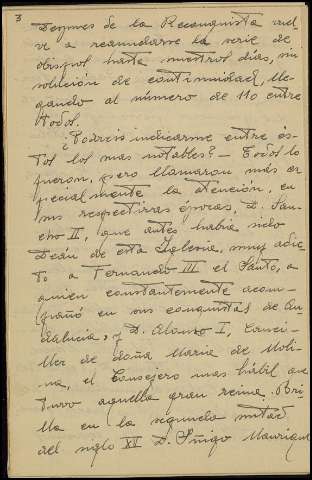 3
Despues de la Reconquista vuel-
ve a reanudarse la serie de
obispos hasta nuestros días, sin
solución de continuidad, lle-
gando al número de 110 entre
todos.
¿Podreis indicarme entre és-
tos los mas notables? — Todos lo
fueron, pero llamaron más es-
pecialmente la atención, en
sus respectivas épocas, D. San-
cho II, que antes había sido
Deán de esta Iglesia, muy adic-
to a Fernando III el Santo, a
quien constantemente acom-
pañó en sus conquistas de An-
dalucia, y D. Alonso I, Canci-
ller de doña Maria de Moli-
na, el Consejero mas hábil que
tuvo aquella gran reina. Bri-
lla en la segunda mitad
del siglo XV D. Iñigo Manrique